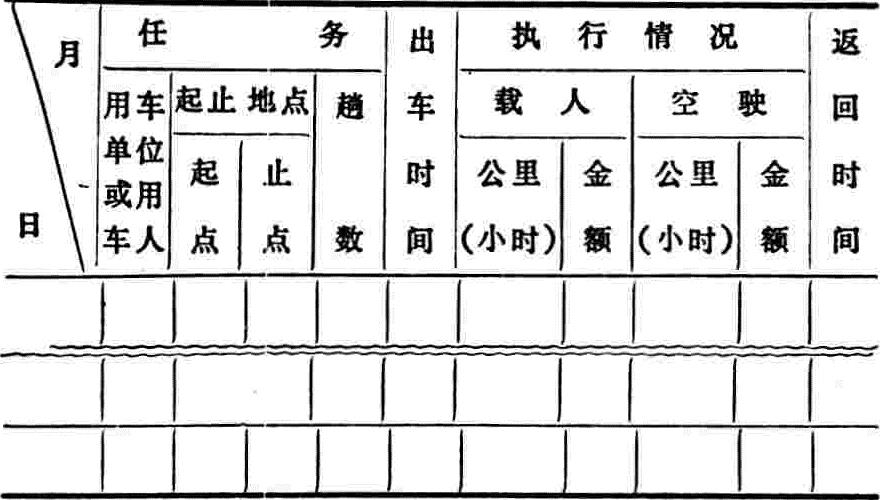 月
日
任务
用车单位或用车人
起止地点
起点
止点
趟数
出车时间
执行情况
载人
公里(小时)
金额
空驶
公里(小时)
金额
返回时间